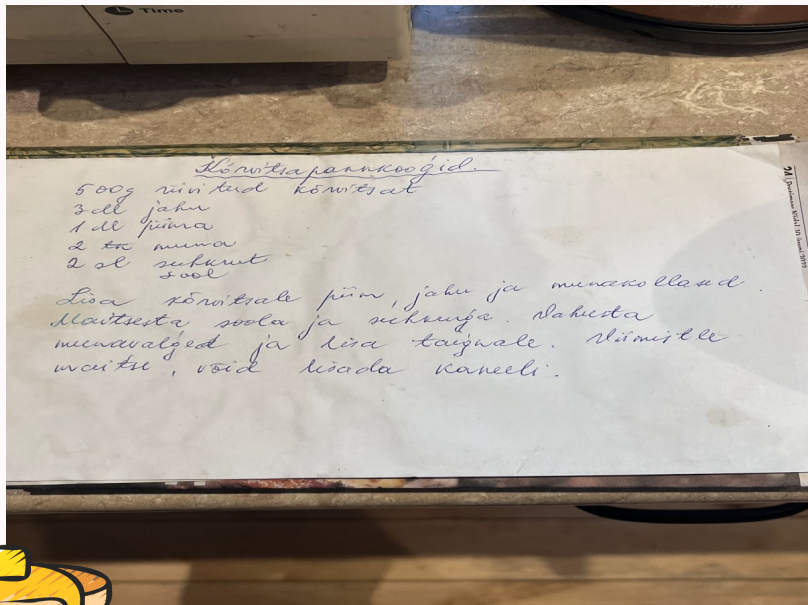 Time
Kõrvitsapannkoogid.
500g riivitud kõrvitsat
3 dl jahu
1 dl piima
2 tk muna
2 sl suhkrut
sool
Lisa kõrvitsale piim, jahu ja munakollased.
Maitsesta soola ja suhkruga. Vahusta
munavalged ja lisa taignale. Viimistle
maitse, võid lisada kaneeli.
24